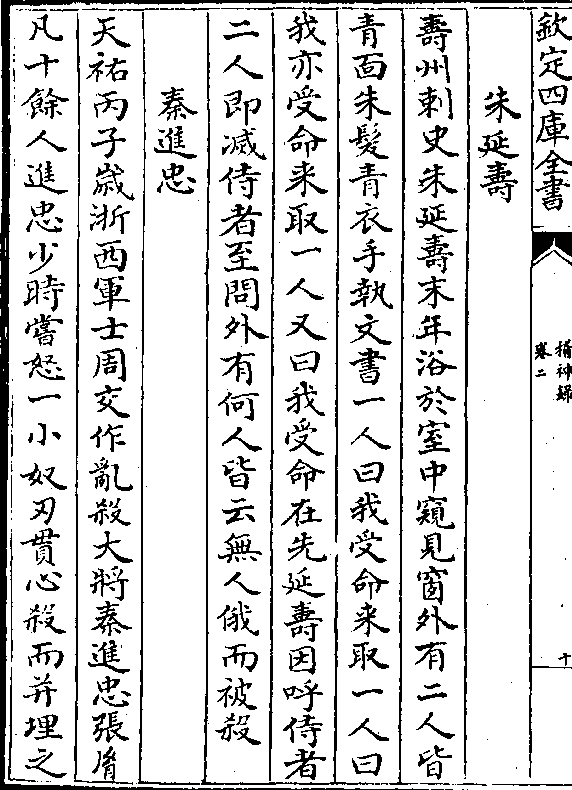 欽定四庫全書
稽神録
卷二
十
朱延壽
壽州刺史朱延壽末年浴於室中窺見窗外有二人皆
青面朱髮青衣手執文書一人曰我受命來取一人曰
我亦受命來取一人又曰我受命在先延壽因呼侍者
二人即滅侍者至問外有何人皆云無人俄而被殺
秦進忠
天祐丙子歲浙西軍士周交作亂殺大將秦進忠張胤
凡十餘人進忠少時嘗怒一小奴刃貫心殺而并埋之